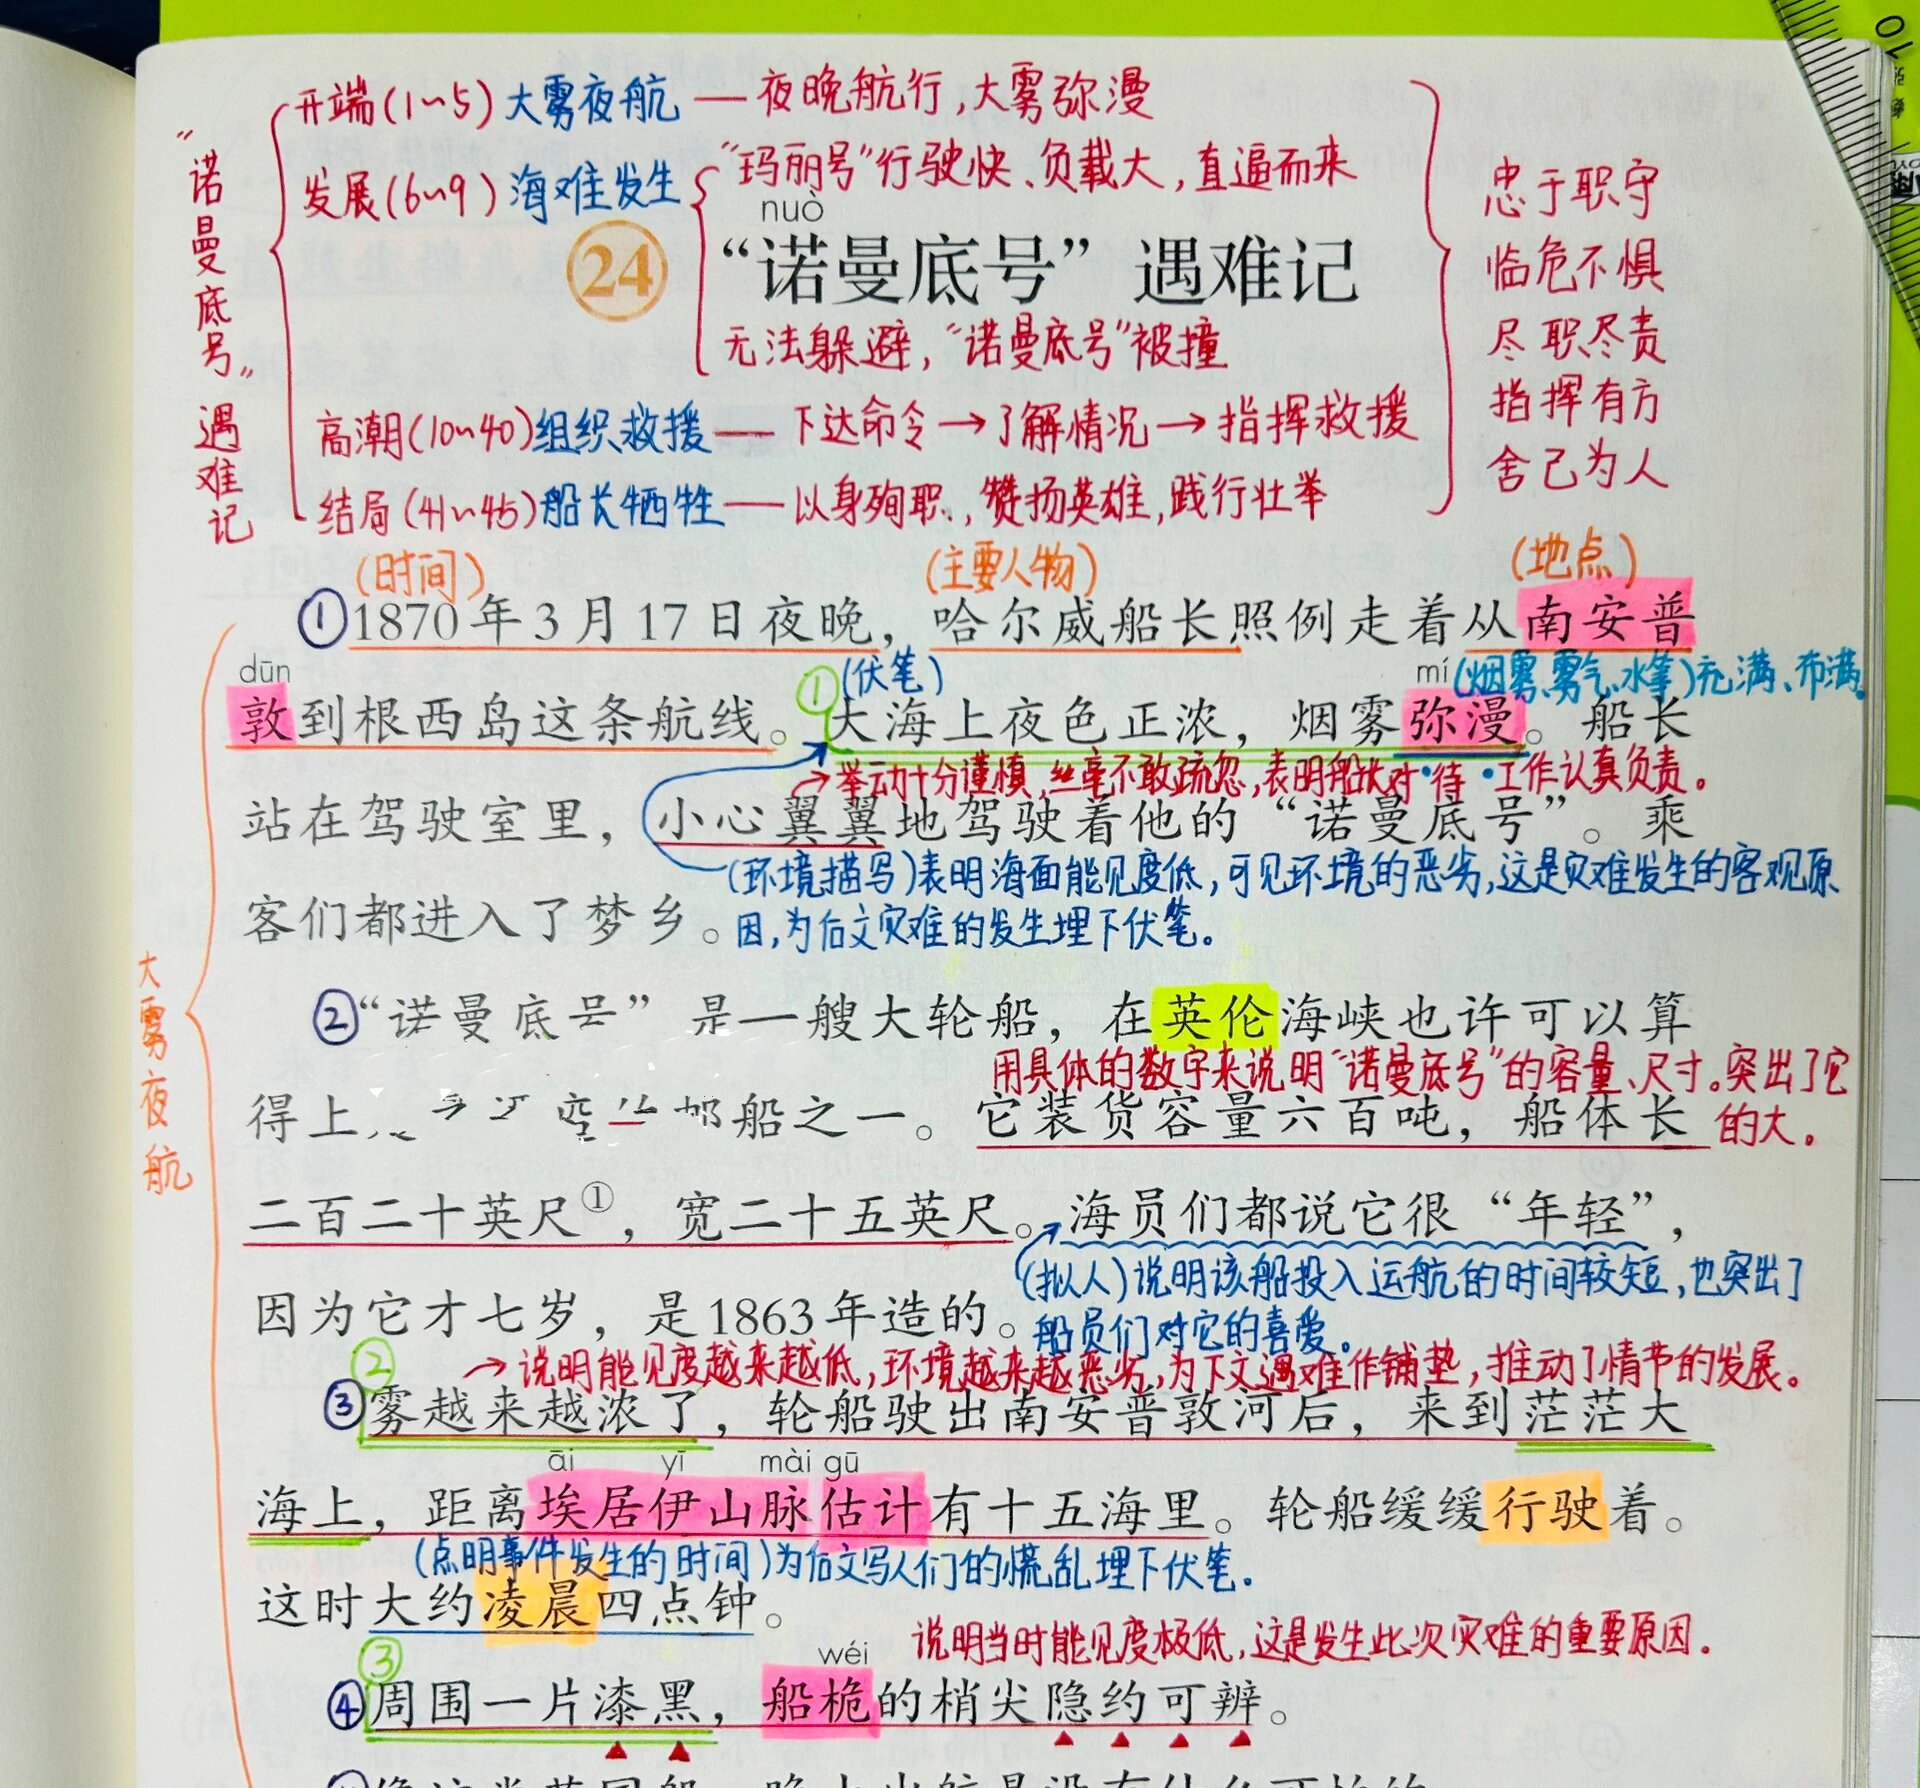 开端(1~5)大雾夜航——夜晚航行,大雾弥漫
发展(6~9)海难发生
"玛丽号"行驶快、负载大,直逼而来
nuò
24 “诺曼底号”遇难记
无法躲避,"诺曼底号"被撞
高潮(10~40)组织救援——下达命令→了解情况→指挥救援
结局(41~45)船长牺牲——以身殉职,赞扬英雄,践行壮举
"诺曼底号"遇难记
忠于职守
临危不惧
尽职尽责
指挥有方
舍己为人
(时间) (主要人物) (地点)
①1870年3月17日夜晚，哈尔威船长照例走着从南安普
dūn ①(伏笔) mí (烟雾、雾气、水等)充满、布满。
敦到根西岛这条航线。大海上夜色正浓，烟雾弥漫。船长
→举动十分谨慎,丝毫不敢疏忽,表明船长对待工作认真负责。
站在驾驶室里，小心翼翼地驾驶着他的“诺曼底号”。乘
(环境描写)表明海面能见度低,可见环境的恶劣,这是灾难发生的客观原
客们都进入了梦乡。
因,为后文灾难的发生埋下伏笔。
大雾夜航
②“诺曼底号”是一艘大轮船，在英伦海峡也许可以算
用具体的数字来说明"诺曼底号"的容量、尺寸。突出了它
得上 邮船之一。它装货容量六百吨，船体长
的大。
二百二十英尺①，宽二十五英尺。海员们都说它很“年轻”，
(拟人)说明该船投入运航的时间较短,也突出了
因为它才七岁，是1863年造的。
船员们对它的喜爱。
② →说明能见度越来越低,环境越来越恶劣,为下文遇难作铺垫,推动了情节的发展。
③雾越来越浓了，轮船驶出南安普敦河后，来到茫茫大
āi yī mài gū
海上，距离埃居伊山脉估计有十五海里。轮船缓缓行驶着。
(点明事件发生的时间)为后文写人们的慌乱埋下伏笔.
这时大约凌晨四点钟。
说明当时能见度极低,这是发生此次灾难的重要原因.
③ wéi
④周围一片漆黑，船桅的梢尖隐约可辨。